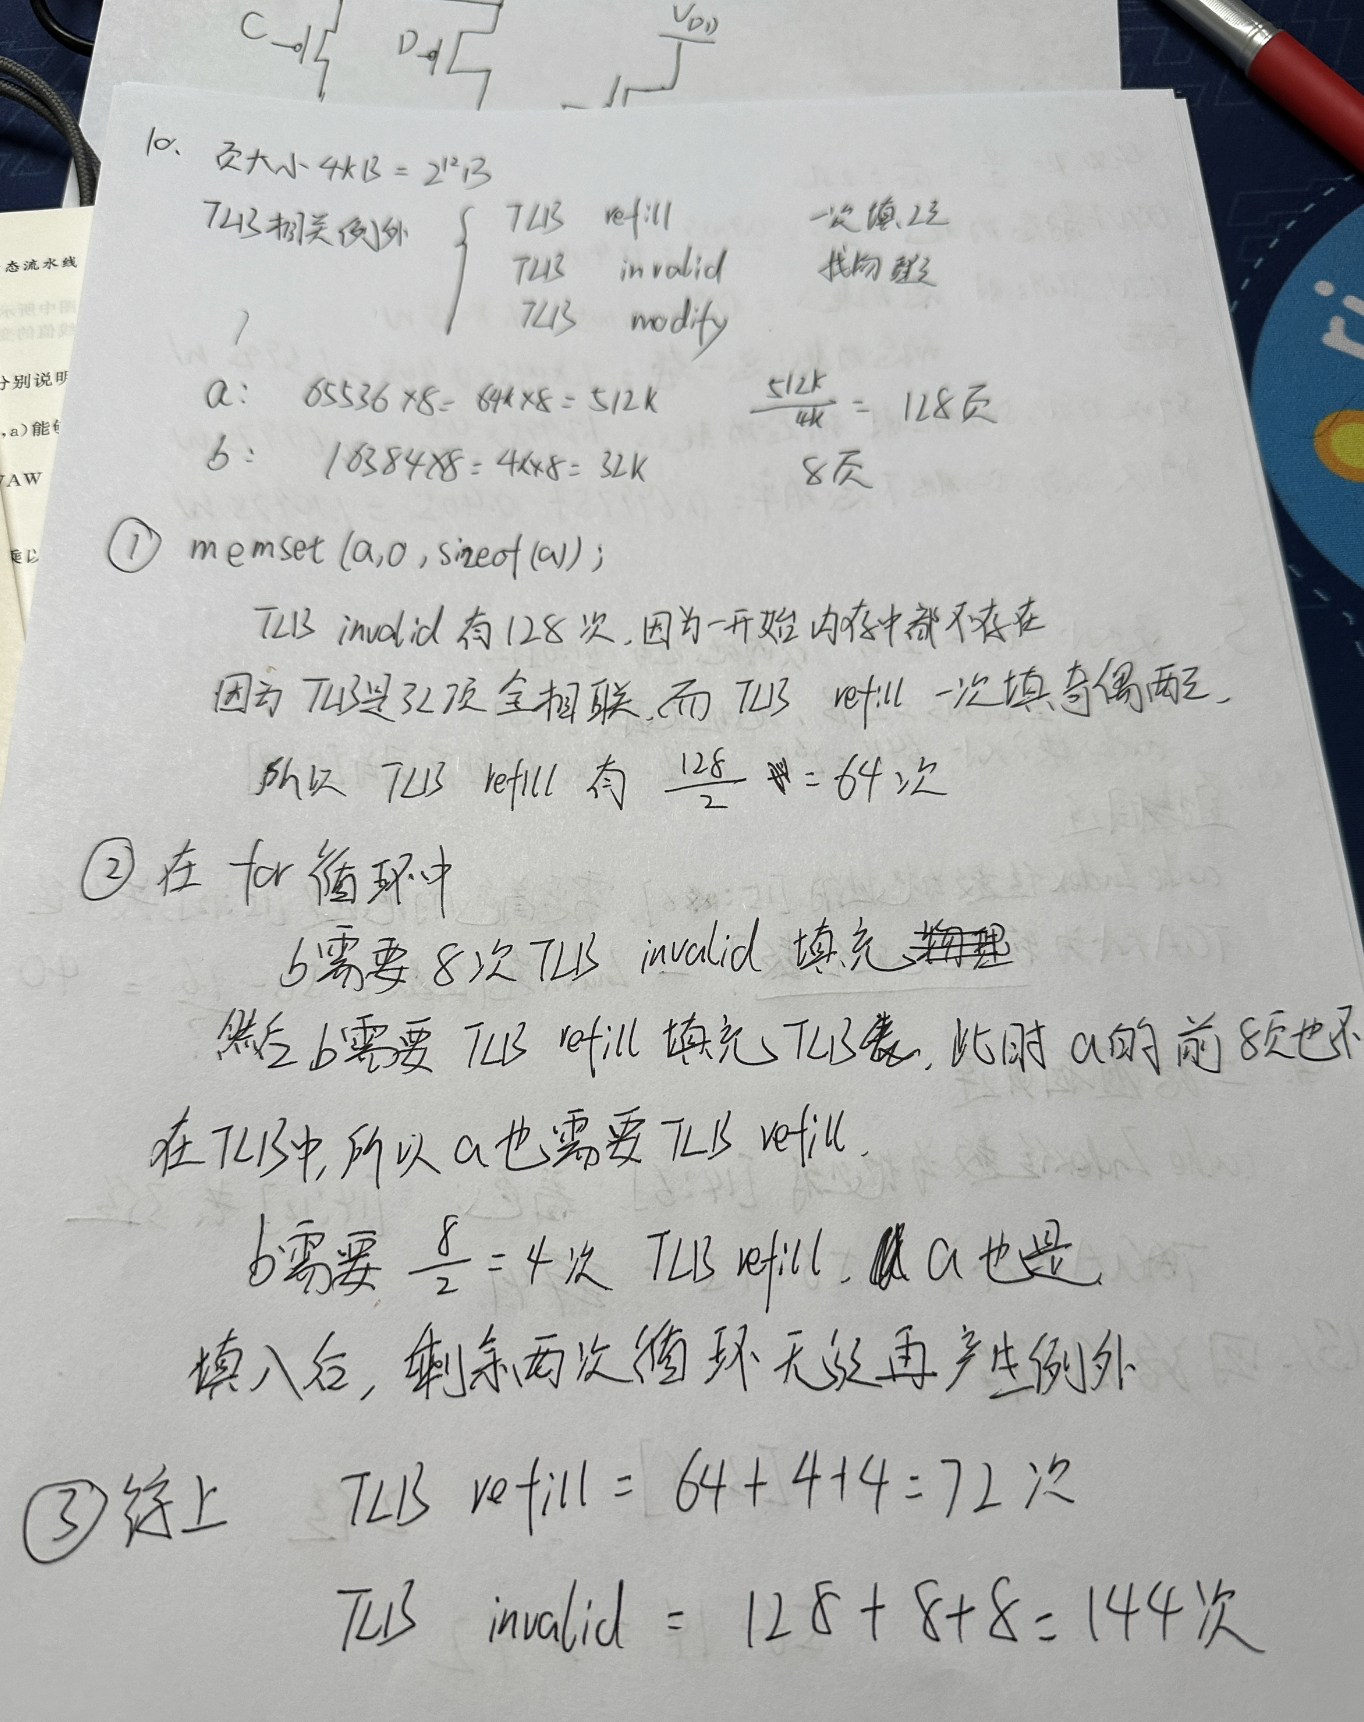 C
D
VDD
10、 页大小 4KB = 2¹²B
TLB相关例外 { TLB refill 一次填2页
TLB invalid 找物理页
TLB modify
a: 65536×8= 64k×8= 512K 512K/4K = 128页
b: 16384×8= 4k×8= 32K 8页
① memset (a,0, sizeof(a));
TLB invalid 有128次,因为一开始内存中都不存在
因为TLB是32项全相联,而TLB refill 一次填奇偶两页,
所以 TLB refill 有 128/2 = 64次
② 在 for 循环中
b需要 8次TLB invalid 填充物理
然后b需要 TLB refill 填充TLB表,此时a的前8页也不
在TLB中,所以a也需要TLB refill,
b需要 8/2 = 4次 TLB refill, a也是
填入后,剩余两次循环无须再产生例外
③ 综上 TLB refill = 64+4+4=72次
TLB invalid = 128+8+8=144次
态流水线
分别说明
,a)能
WAW
乘以